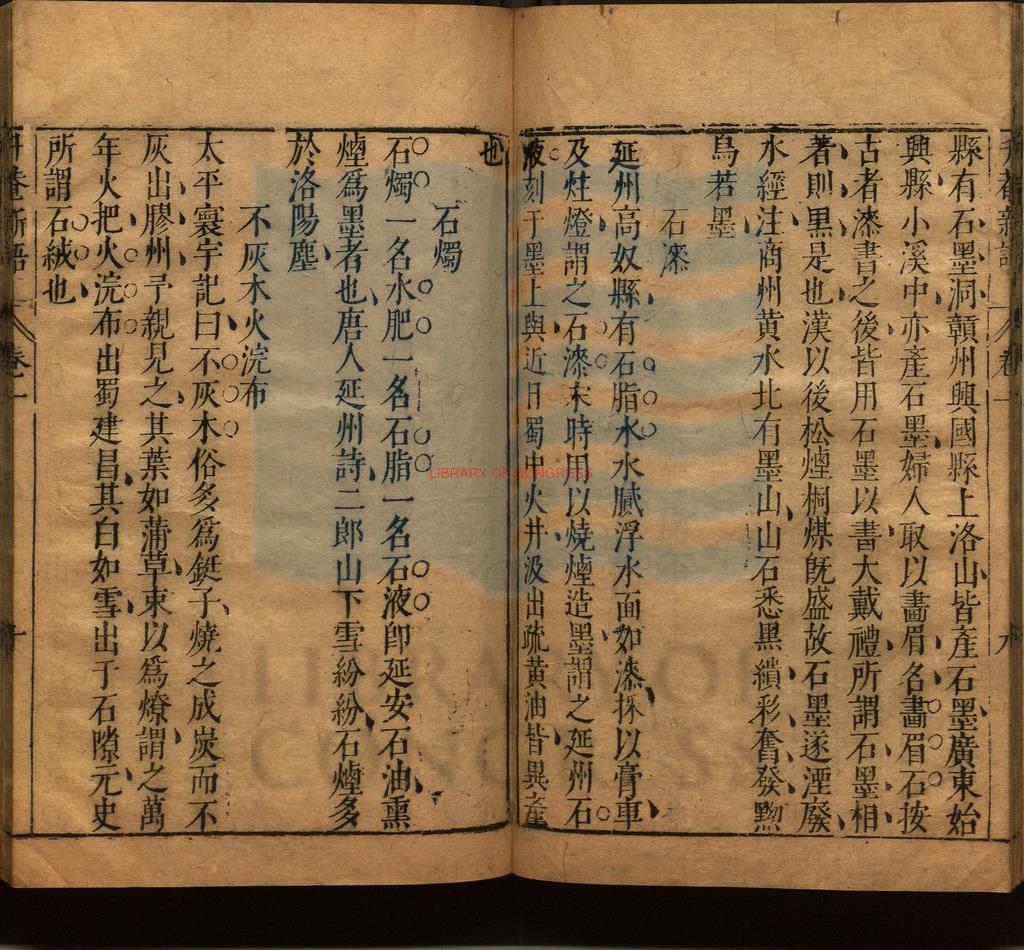 縣有石墨洞贛州興國縣上洛山皆產石墨廣東始
興縣小溪中亦產石墨婦人取以畵眉名畵眉石按
古者漆書之後皆用石墨以書大戴禮所謂石墨相
著則黑是也漢以後松煙桐煤旣盛故石墨遂湮廢
水經注商州黃水北有墨山山石悉黑繢彩奮發黝
鳥若墨
石漆
延州高奴縣有石脂水水膩浮水面如漆採以膏車
及炷燈謂之石漆宋時用以燒煙造墨謂之延州石
液刻于墨上與近日蜀中火井汲出疏黃油皆異產
也
石燭
石燭一名水肥一名石脂一名石液卽延安石油熏
煙爲墨者也唐人延州詩二郎山下雪紛紛石煙多
於洛陽塵
不灰木火浣布
太平寰宇記曰不灰木俗多爲鋌子燒之成炭而不
灰出膠州予親見之其葉如蒲草束以爲燎謂之萬
年火把火浣布出蜀建昌其白如雪出于石隙元史
所謂石絨也
卷二
十
LIBRARY OF CONGRESS